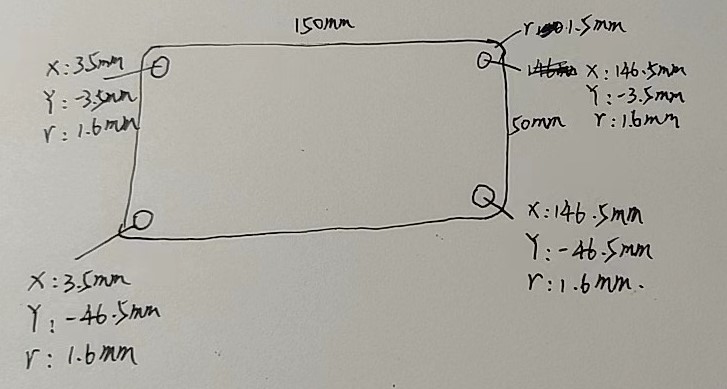 150mm
r 1.5mm
X:3.5mm
Y:-3.5mm
r:1.6mm
X:146.5mm
Y:-3.5mm
r:1.6mm
50mm
X:146.5mm
Y:-46.5mm
r:1.6mm.
X:3.5mm
Y:-46.5mm
r:1.6mm